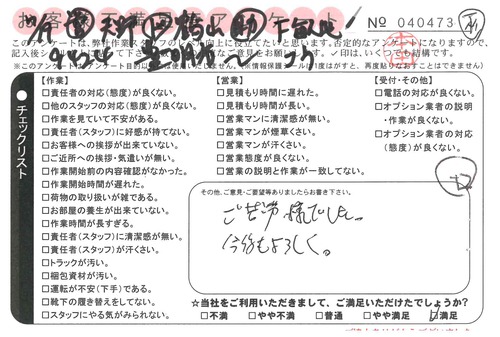 No 040473
このアンケートは、弊社作業スタッフのレベル向上に役立てたいと思います。否定的なアンケートになりますので、
記入後
ご意見をお願いします。✓印は、いくつでも結構です。
※このアンケートは、アンケート目的以外
(情報保護シールは1度はがすと、再度貼りなおすことはできません)
チェックリスト
【作業】
□責任者の対応(態度)が良くない。
□他のスタッフの対応(態度)が良くない。
□作業を見ていて不安がある。
□責任者(スタッフ)に好感が持てない。
□お客様への挨拶が出来ていない。
□ご近所への挨拶・気遣いが無い。
□作業開始前の内容確認がなかった。
□作業開始時間が遅れた。
□荷物の取り扱いが雑である。
□お部屋の養生が出来ていない。
□作業時間が長すぎる。
□責任者(スタッフ)に清潔感が無い。
□責任者(スタッフ)が汗くさい。
□トラックが汚い。
□梱包資材が汚い。
□運転が不安(下手)である。
□靴下の履き替えをしてない。
□スタッフにやる気がみられない。
【営業】
□見積もり時間に遅れた。
□見積もり時間が長い。
□営業マンに清潔感が無い。
□営業マンが煙草くさい。
□営業マンが汗くさい。
□営業態度が良くない。
□営業の説明と作業が一致してない。
【受付・その他】
□電話の対応が良くない。
□オプション業者の説明
・作業が良くない。
□オプション業者の対応
(態度)が良くない。
その他、ご意見・ご要望等ありましたらお書き下さい。
ご苦労様でした。
今後もよろしく。
☆当社をご利用いただきまして、ご満足いただけたでしょうか?
□不満 □やや不満 □普通 □やや満足 ☑満足